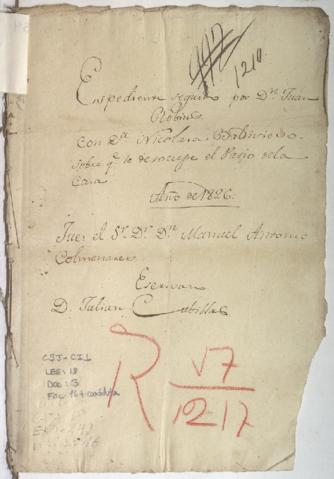 1210.
Espediente seguido por Dn. Juan
Robin
con Da. Nicolasa
sobre qe. le desocupe el Patio de la
Casa
Año de 1826.
Juez el Sr. Dr. Dn. Manuel Antonio
Colmenares
Escrivano
D. Julian Cubillas
CSJ-CI1
LEG: 18
DOC: 3
R 17
12 17